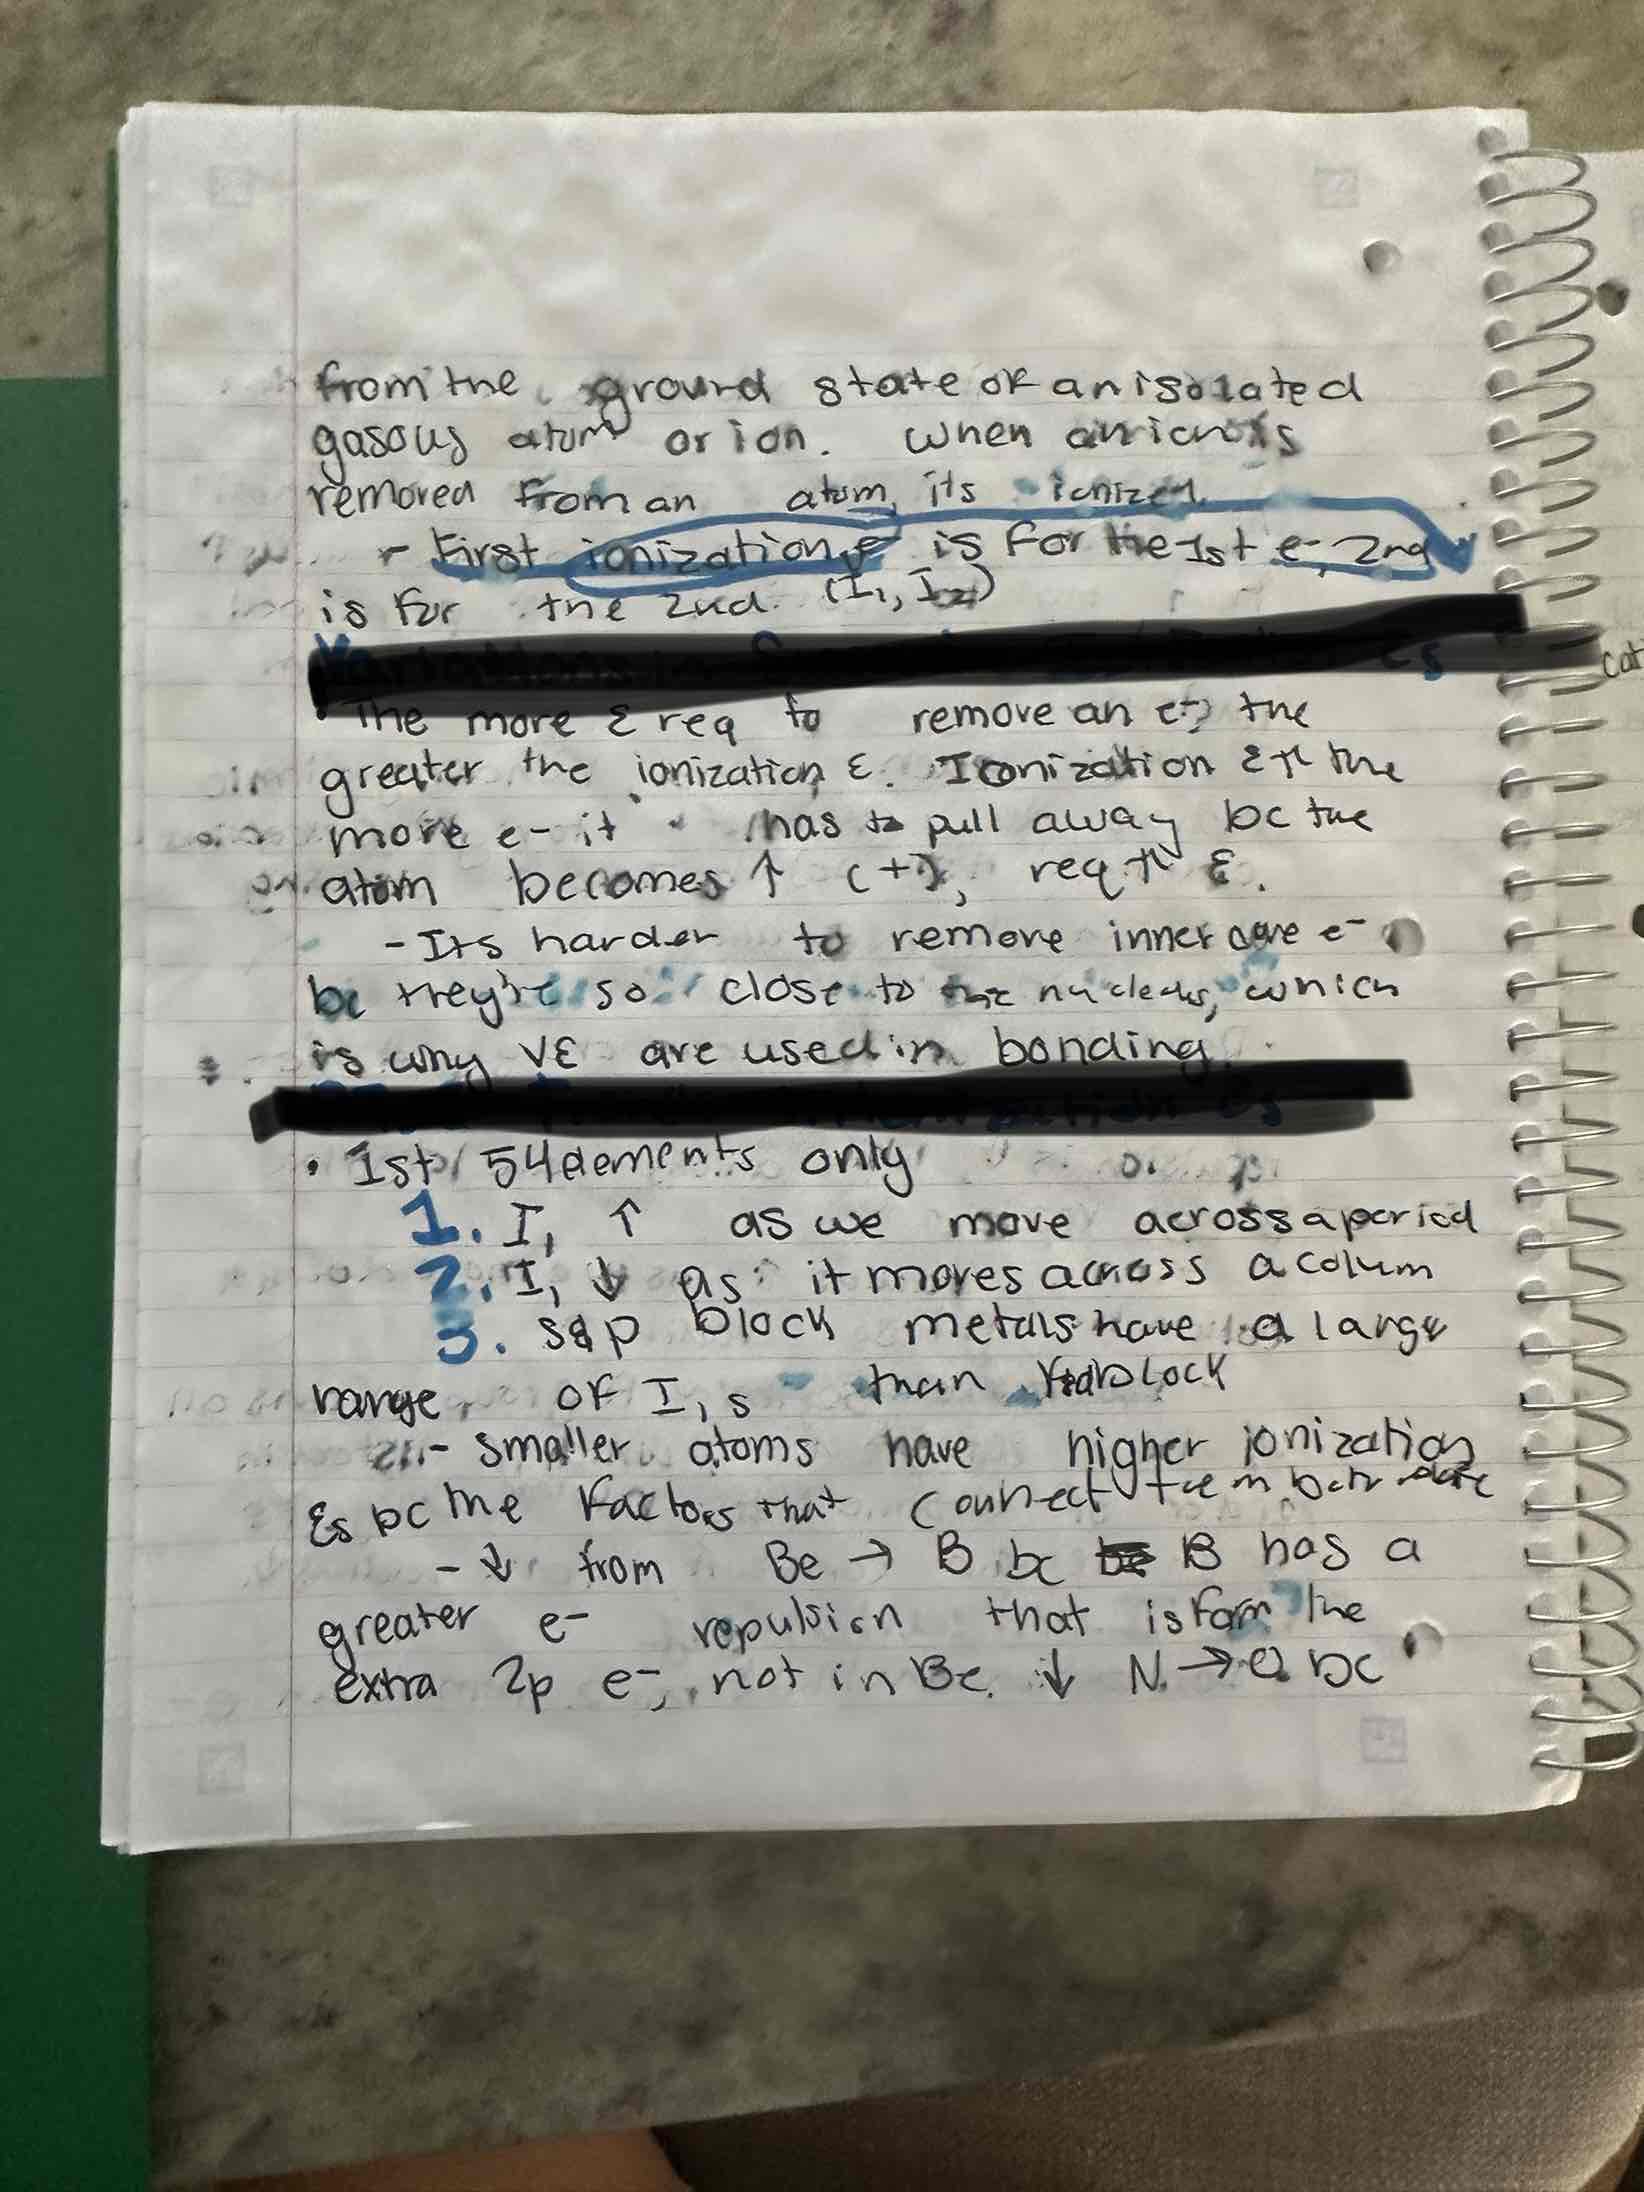 from the ground state of an isolated
gasous atom or ion. When an ion is
removed from an atom, its ionized.
- First ionization ε is for the 1st e-, 2nd
is for the 2nd. (I₁, I₂)
• The more ε req to remove an e-, the
greater the ionization ε. Ionization ε ↑ the
more e- it has to pull away bc the
atom becomes ↑ (+), req ↑ ε.
- Its harder to remove inner core e-
bc they're so close to the nucleus, which
is why VE are used in bonding.
• 1st 54 elements only
1. I₁ ↑ as we move across a period
2. I₁ ↓ as it moves across a colum
3. s&p block metals have a large
range of I₁s than block
- smaller atoms have higher ionization
εs bc the factors that connect them both
- ↓ from Be → B bc B has a
greater e- repulsion that is form the
extra 2p e-, not in Be. ↓ N → O bc
cat